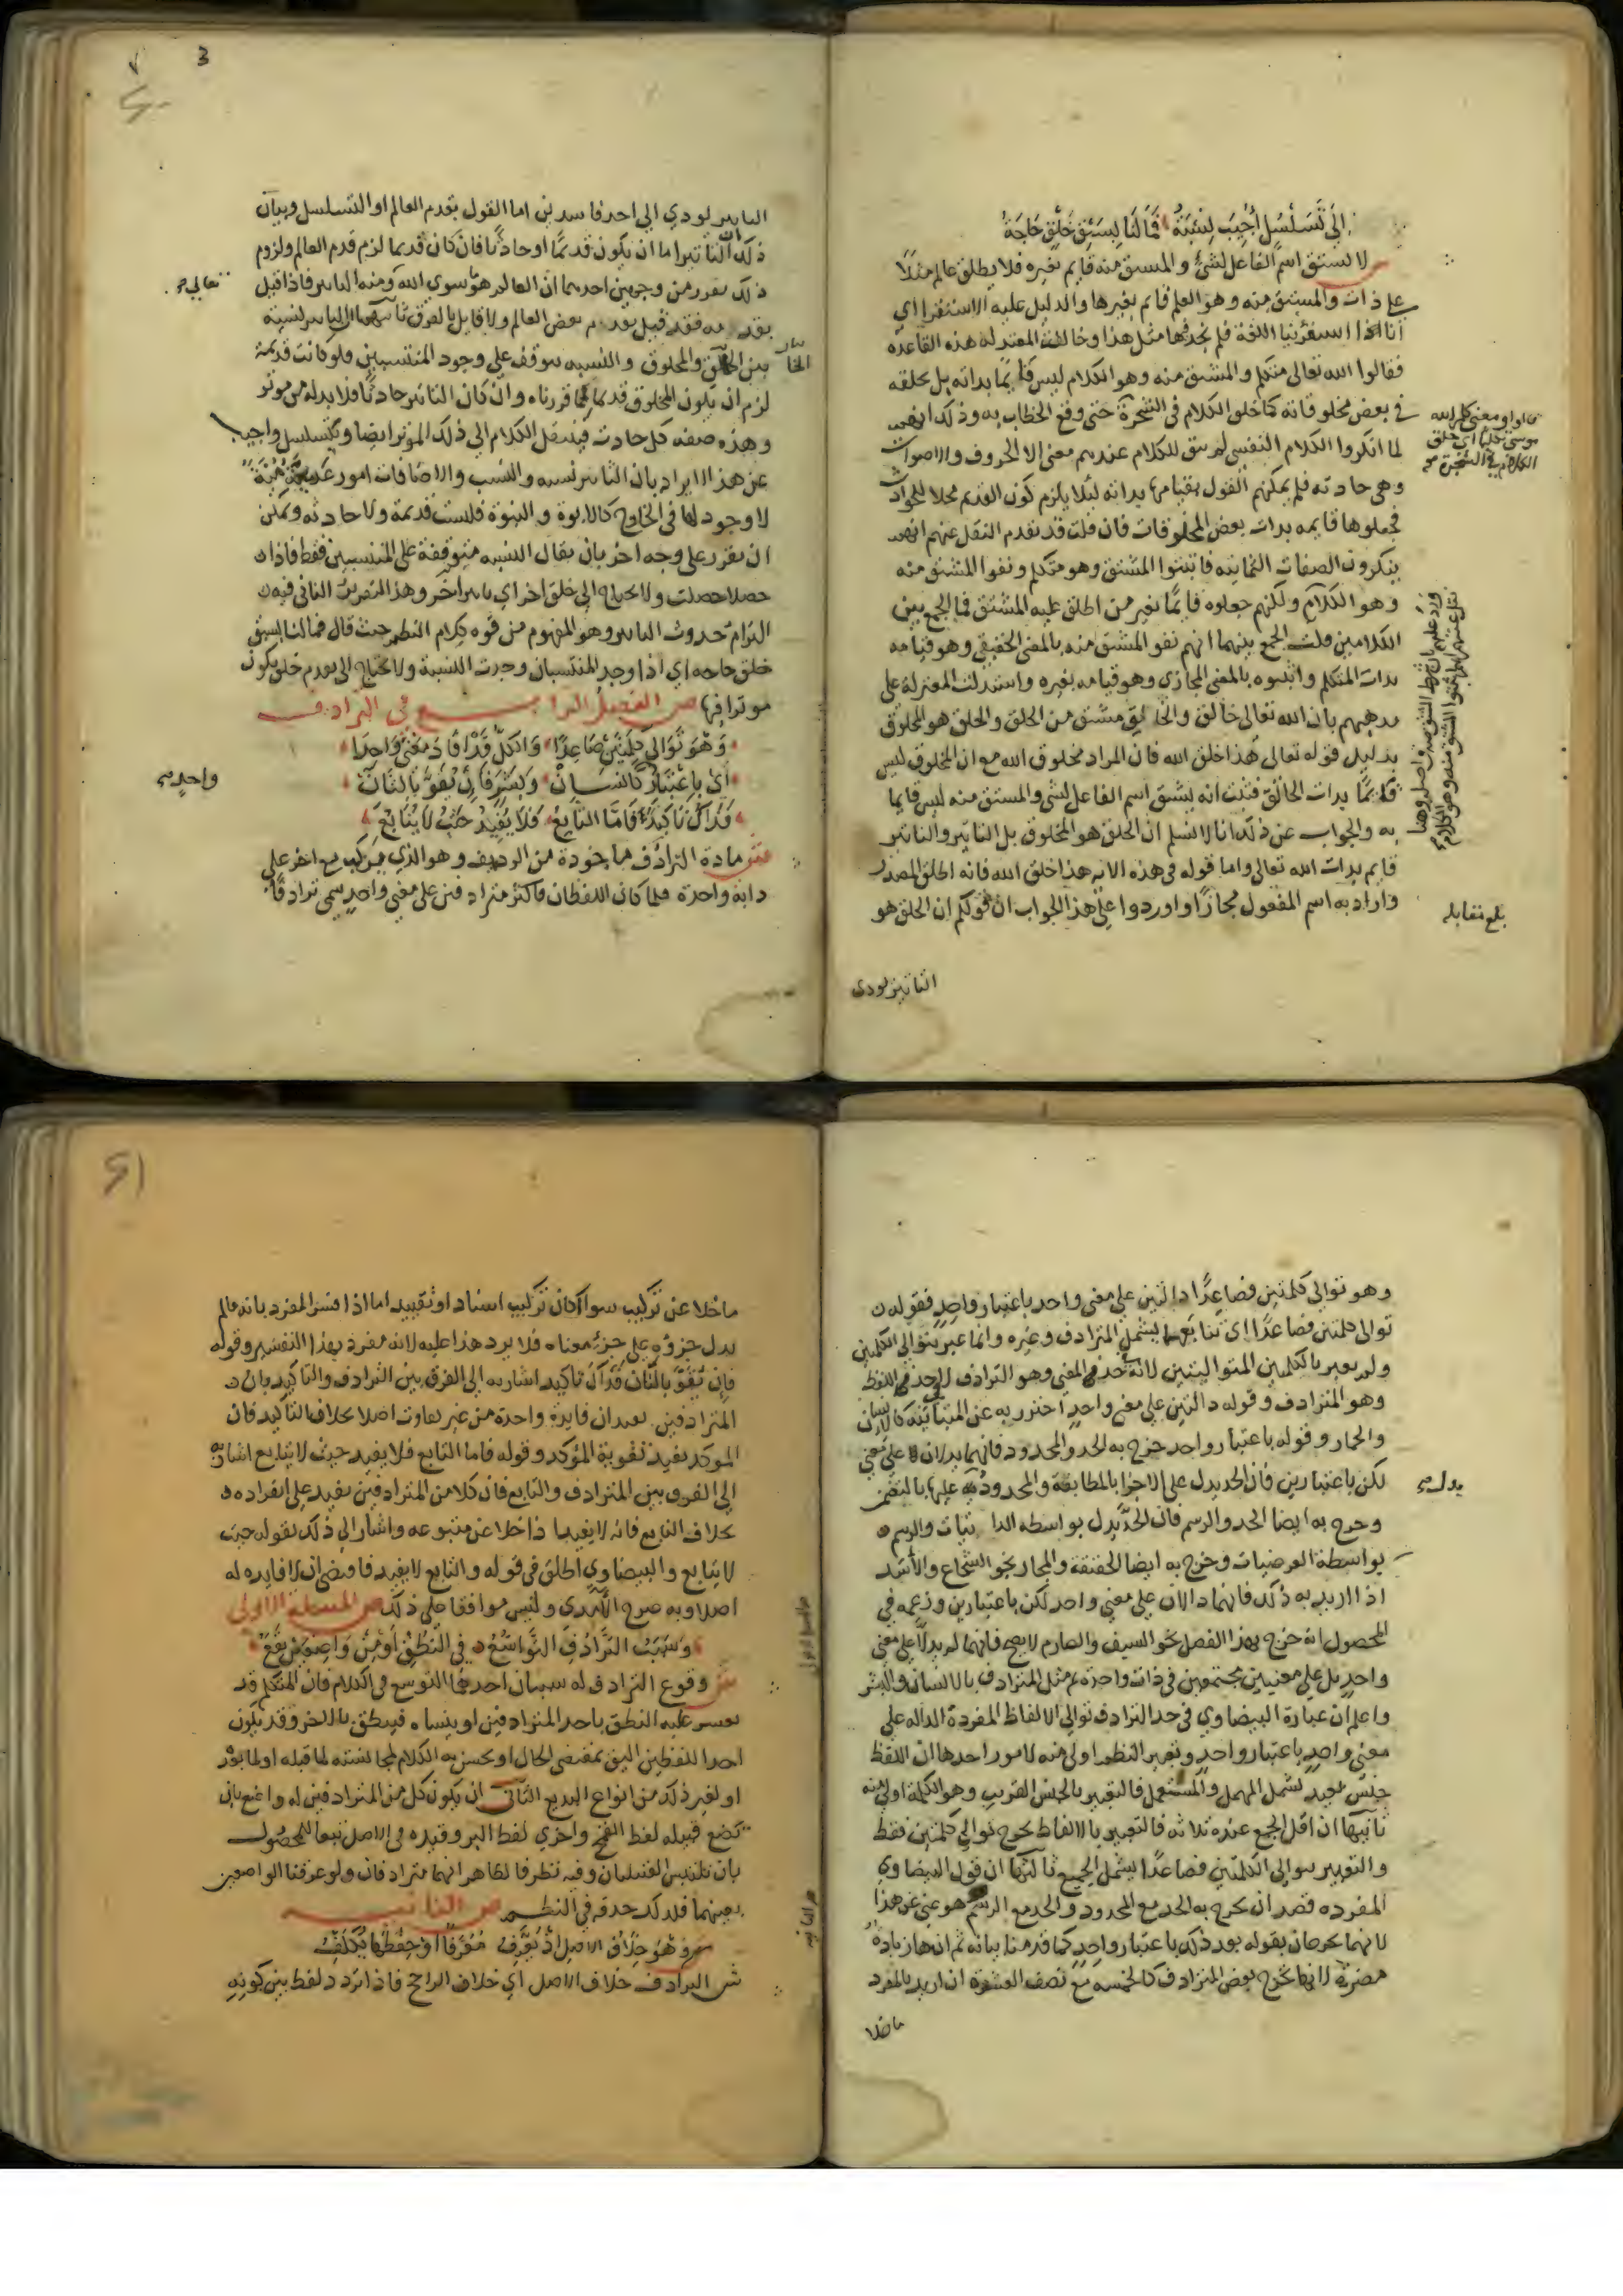 إلى تسلسل أجيب نسبة فما لنا بسبق خلق حاجة
لا يشتق اسم الفاعل لشئ والمشتق منه قايم بغيره فلا يطلق عالم مثلا
على ذات والمشتق منه وهو العلم قايم بغيرها والدليل عليه الاستقرا اي
انا استقرينا اللغة فلم نجد فيها مثل هذا وخالفت المعتزلة هذه القاعدة
فقالوا الله تعالى متكلم والمشتق منه وهو الكلام ليس قايما بذاته بل يخلقه
في بعض مخلوقاته كما خلق الكلام في الشجرة حتى وقع الخطاب به وذلك انهم
لما انكروا الكلام النفسي لم يبق للكلام عندهم معنى الا الحروف والاصوات
وهي حادثة فلم يمكنهم القول بقيامها بذاته ليلا يلزم كون القديم محلا للحوادث
فجعلوها قايمه بذات بعض المخلوقات فان قلت قد تقدم النقل عنهم انهم
ينكرون الصفات الثمانيه فاثبتوا المشتق وهو متكلم ونفوا المشتق منه
وهو الكلام ولكنهم جعلوه قايما بغير من اطلق عليه المشتق فما الجمع بين
الكلامين قلت الجمع بينهما انهم نفو المشتق منه بالمعنى الحقيقي وهو قيامه
بذات المتكلم واثبتوه بالمعنى المجازي وهو قيامه بغيره واستدلت المعتزلة على
مذهبهم بان الله تعالى خالق والخالق مشتق من الخلق والخلق هو المخلوق
بدليل قوله تعالى هذا خلق الله فان المراد مخلوق الله مع ان المخلوق ليس
قايما بذات الخالق فثبت انه يشتق اسم الفاعل لشي والمشتق منه ليس قايما
به والجواب عن ذلك انا لا نسلم ان الخلق هو المخلوق بل التاثير والتاثير
قايم بذات الله تعالى واما قوله في هذه الايه هذا خلق الله فانه اطلق المصدر
واراد به اسم المفعول مجازا واوردوا على هذا الجواب ان قولكم ان الخلق هو
بلغ مقابله
التاثير يودي
التاثير يودي الى احد فاسدين اما القول بقدم العالم او التسلسل وبيان
ذلك ان التاثير اما ان يكون قديما او حادثا فان كان قديما لزم قدم العالم ولزوم
ذلك يقرر من وجهين احدهما ان العالم هو ما سوى الله ومنه التاثير فاذا قيل
تعالى
بقدمه فقد قيل بقدم بعض العالم ولا قايل بالفرق ثانيهما ان التاثير نسبة
بين الخالق والمخلوق والنسبه تتوقف على وجود المنتسبين فلو كانت قديمة
لزم ان يكون المخلوق قديما كما قررناه وان كان التاثير حادثا فلا بد له من موثر
وهذه صفه كل حادث فينتقل الكلام الى ذلك الموثر ايضا ويتسلسل واجيب
عن هذا الايراد بان التاثير نسبه والنسب والاضافات امور عدمية
لا وجود لها في الخارج كالابوة والبنوة فليست قديمة ولا حادثه ويمكن
ان يقرر على وجه اخر بان يقال النسبه متوقفة على المنتسبين فقط فاذا
حصلا حصلت ولا تحتاج الى خلق اخر اي تاثير اخر وهذا التقرير الثاني فيه
التزام حدوث التاثير وهو المفهوم من قوه كلام النظم حيث قال فما لنا بسبق
خلق حاجه اي اذا وجد المنتسبان وجدت النسبة ولا تحتاج الى تقدم خلق يكون
موثرا فيها ص الفصل الرابع في الترادف
وهو توالي كلمتين فصاعدا وان كل قد افاد معنى واحدا
واحد صح
أي باعتبار كالنسان وبشر فإن تقو بالثان
فذاك تأكيد فأما التابع فلا يفيد حيث لا يتابع
ش مادة الترادف ماخوذة من الرديف وهو الذي يركب مع اخر على
دابة واحدة فلما كان اللفظان فاكثر مترادفين على معنى واحد سمي ترادفا
وهو توالي كلمتين فصاعدا دالتين على معنى واحد باعتبار واحد فقوله
توالي كلمتين فصاعدا اي تتابعهما يشمل المترادف وغيره وانما عبر بتوالي الكلمتين
ولم يعبر بالكلمتين المتواليتين لانه حد في المعنى وهو الترادف لا حد في اللفظ
وهو المترادف وقوله دالتين على معنى واحد احترز به عن المتباينه كالانسان
والحمار وقوله باعتبار واحد خرج به الحد والمحدود فانهما يدلان على معنى
لكن باعتبارين فان الحد يدل على الاجزا بالمطابقة والمحدود يدل عليها بالتضمن
وخرج به ايضا الحد والرسم فان الحد يدل بواسطه الذاتيات والرسم
بواسطة العرضيات وخرج به ايضا الحقيقة والمجاز نحو الشجاع والأسد
اذا اريد به ذلك فانهما دالان على معنى واحد لكن باعتبارين وزعمه في
المحصول انه خرج بهذا الفصل نحو السيف والصارم لا يصح فانهما لم يدلا على معنى
واحد بل على معنيين مجتمعين في ذات واحدة ثم مثل المترادف بالانسان والبشر
واعلم ان عبارة البيضاوي في حد الترادف توالي الالفاظ المفردة الداله على
معنى واحد باعتبار واحد وتعبير النظم اولى منه لامور احدها ان اللفظ
جنس بعيد لشمل المهمل والمستعمل فالتعبير بالجنس القريب وهو الكلمة اولى منه
ثانيها ان اقل الجمع عنده ثلاثه فالتعبير بالالفاظ يخرج توالي كلمتين فقط
والتعبير بتوالي الكلمتين فصاعدا يشمل الجميع ثالثها ان قول البيضاوي
المفرده قصد ان يخرج به الحد مع المحدود والحد مع الرسم هو غني عن هذا
لانهما يخرجان بقوله بعد ذلك باعتبار واحد كما قدمنا بيانه ثم انها زيادة
مضرة لانها تخرج بعض المترادف كالخمسه مع نصف العشرة ان اريد بالمفرد
ما خلا
ما خلا عن تركيب سواء كان تركيب اسناد او تقييد اما اذا فسر المفرد بانه ما لم
يدل جزؤه على جزء معناه فلا يرد هذا عليه لانه مفرد بهذا التفسير وقوله
فإن تقو بالثان فذاك تاكيد اشار به الى الفرق بين الترادف والتاكيد بان
المترادفين يفيدان فايدة واحدة من غير تفاوت اصلا بخلاف التاكيد فان
الموكد يفيد تقوية المؤكد وقوله فاما التابع فلا يفيد حيث لا يتابع اشار به
إلى الفرق بين المترادف والتابع فان كلا من المترادفين يفيد على انفراده
بخلاف التابع فانه لا يفيد اذا خلا عن متبوعه واشار الى ذلك بقوله حيث
لا يتابع والبيضاوي اطلق في قوله والتابع لا يفيد فاقتضى ان لا فايده له
اصلا وبه صرح الآمدي وليس موافقا على ذلك ص المسئلة الاولى
وسبب الترادف التواسع في النطق أو من واضعين يقع
ش وقوع الترادف له سببان احدهما التوسع في الكلام فان المتكلم قد
يعسر عليه النطق باحد المترادفين او ينساه فينطق بالاخر وقد يكون
احد اللفظين اليق بمقتضى الحال او يحسن به الكلام لمجانسته لما قبله او لما بعد
او لغير ذلك من انواع البديع الثاني ان يكون كل من المترادفين له واضع بان
تضع قبيله لفظ القمح واخرى لفظ البر وقيده في الاصل تبعا للمحصول
بان تلتبس القبيلتان وفيه نظر فالظاهر انهما مترادفان ولو عرفنا الواضعين
بعينهما فلذلك حذفه في النظم ص الثانيه
وهو خلاف الاصل إذ يعرف معرفا أو حفظها يكلف
ش الترادف خلاف الاصل اي خلاف الراجح فاذا تردد لفظ بين كونه